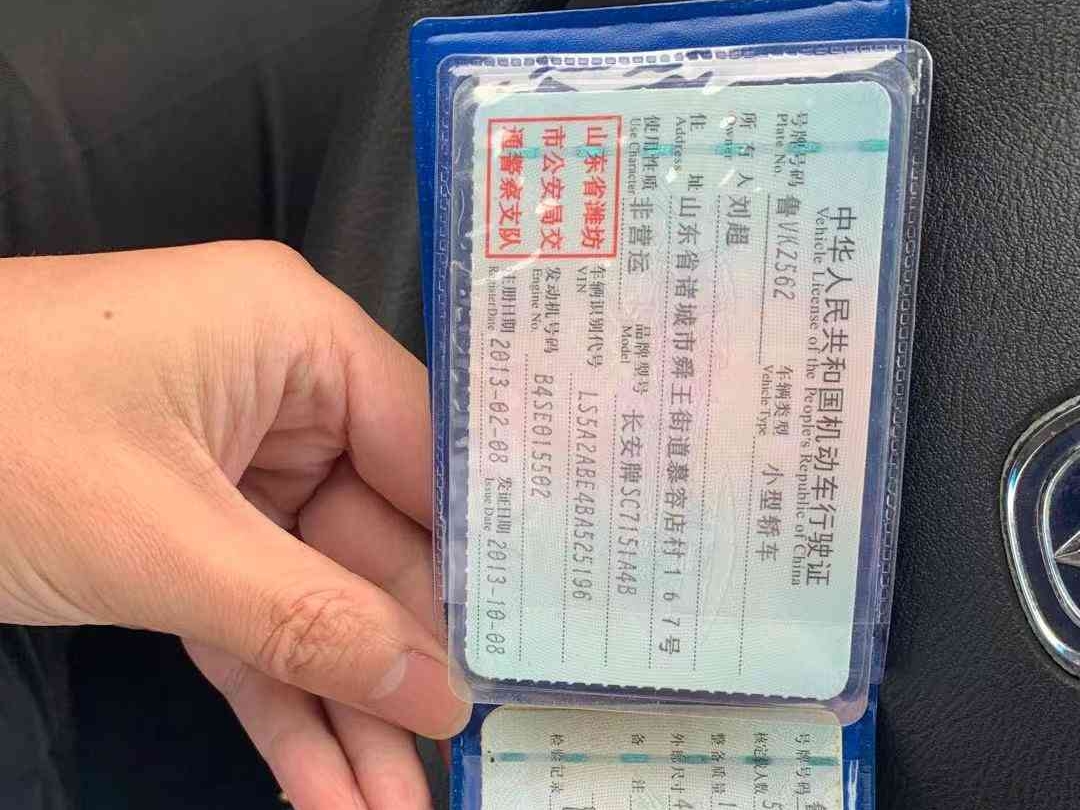 中华人民共和国机动车行驶证
Vehicle License of the People's Republic of China
号牌号码 鲁VKZ562 车辆类型 小型轿车
Plate No. Vehicle Type
所有人 刘超
Owner
住址 山东省诸城市舜王街道慕容店村167号
Address
使用性质 非营运 品牌型号 长安牌SC7151A4B
Use Character Model
山东省潍坊
市公安局交
通警察支队
车辆识别代号 LS5A2ABE4BA525196
VIN
发动机号码 B4SE015502
Engine No.
注册日期 2013-02-08 发证日期 2013-10-08
Register Date Issue Date
号牌号码
核定载人数 5
整备质量 1
外廓尺寸 4
备 注
检验记录